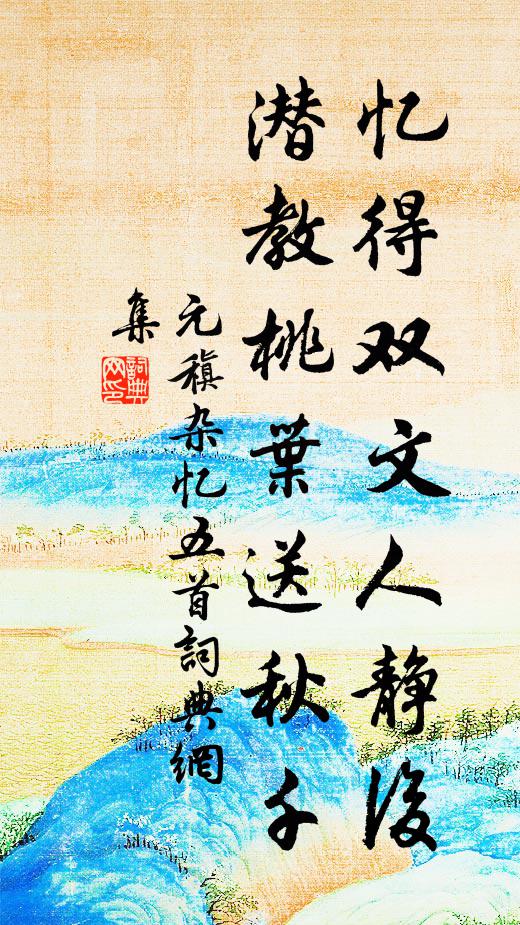 忆得双文人静后
潜教桃葉送秋千
元稹杂忆五首詞典網
集
詞典
网印